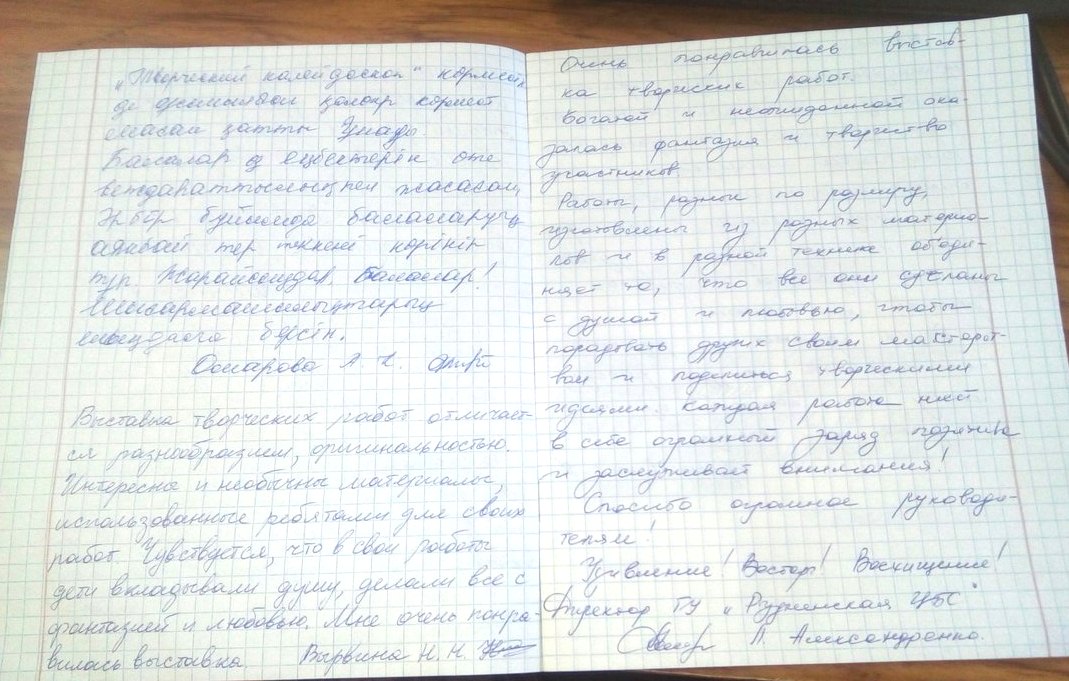 „Творческий калейдоскоп" көрмесін-
де ұсынылған қолөнер көрмет
маған қатты ұнады.
Балалар өз еңбектерін өте
жасаған,
Әр бір бұйымда балалардың
аянбай тер төккені көрініп
тұр. Жарайсыңдар, балалар!
Шығармашылықтарың
шыңдала берсін.
Оспарова А. К.
Выставка творческих работ отличает-
ся разнообразием, оригинальностью.
Интересны и необычны материалы,
использованные ребятами для своих
работ. Чувствуется, что в свои работы
дети вкладывали душу, делали все с
фантазией и любовью. Мне очень понра-
вилась выставка. Вырвина Н. Н.
Очень понравилась выстав-
ка творческих работ.
Богатой и неожиданной ока-
залась фантазия и творчество
участников.
Работы, разные по размеру,
изготовлены из разных материа-
лов и в разной технике объеди-
няет то, что все они сделаны
с душой и любовью, чтобы
порадовать других своим мастерст-
вом и поделиться творческими
идеями. Каждая работа несёт
в себе огромный заряд позитива
и заслуживает внимания!
Спасибо огромное руководи-
телям!
Удивление! Восторг! Восхищение!
Директор ГУ „Рудненская ЦБС"
Л. Александренко.